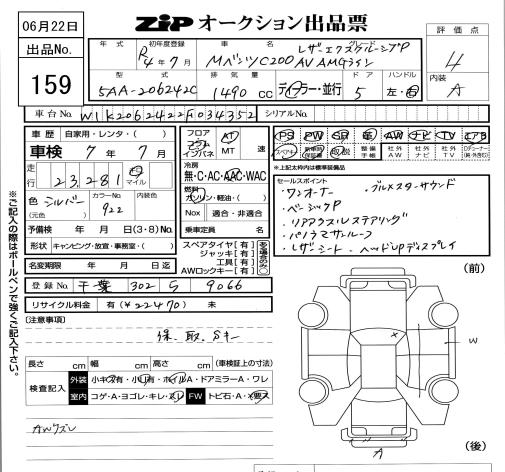 06月22日
ZiPオークション出品票
出品No.
159
評価点
4
内装
A
年式 初年度登録 車名 グレード
R4年7月 MベンツC200 レザーエクスクルーシブP
AV AMGライン
型式 排気量 ドア ハンドル
5AA-206242C 1490cc ディーラー・並行 5 左・右
車台No. W1K2062422F034352 シリアルNo.
車歴 自家用・レンタ・( )
車検 7年 7月
走行 23,281 km マイル
色 シルバー カラーNo. 922 内装色
(元色)
予備検 年 月 日(3・8)No.
形状 キャンピング・放宣・事務室・( )
名変期限 年 月 日迄
フロア コラム インパネ AT MT 速
冷房
無・C・AC・AAC・WAC
燃料
ガソリン・軽油・( )
Nox 適合・非適合
乗車定員 名
スペアタイヤ[有]
ジャッキ[有]
工具[有]
AWロックキー[有]
ある場合のみ○
PS PW SR 革 AW ナビ TV エアB
スペアキー 新車時保証書 取説 整備手帳 社外AW 社外ナビ 社外TV
*上記太枠内は標準装備品
セールスポイント
・ワンオーナー ・ブルメスターサウンド
・ベーシックP
・リアアクスルステアリング
・パノラマサンルーフ
・レザーシート ・ヘッドUPディスプレイ
登録No. 千葉 302 S 9066
リサイクル料金 有(¥22470) 未
[注意事項]
保、取、Sキー
長さ cm 幅 cm 高さ cm (車検証上の寸法)
検査記入 外装 小キズ有・小凹有・ホイルA・ドアミラーA・ワレ
室内 コゲ・A・ヨゴレ・キレ・スレ FW トビ石・A・×要ス
AWクスレ
(前)
W
(後)
A
※ご記入の際はボールペンで強くご記入下さい。